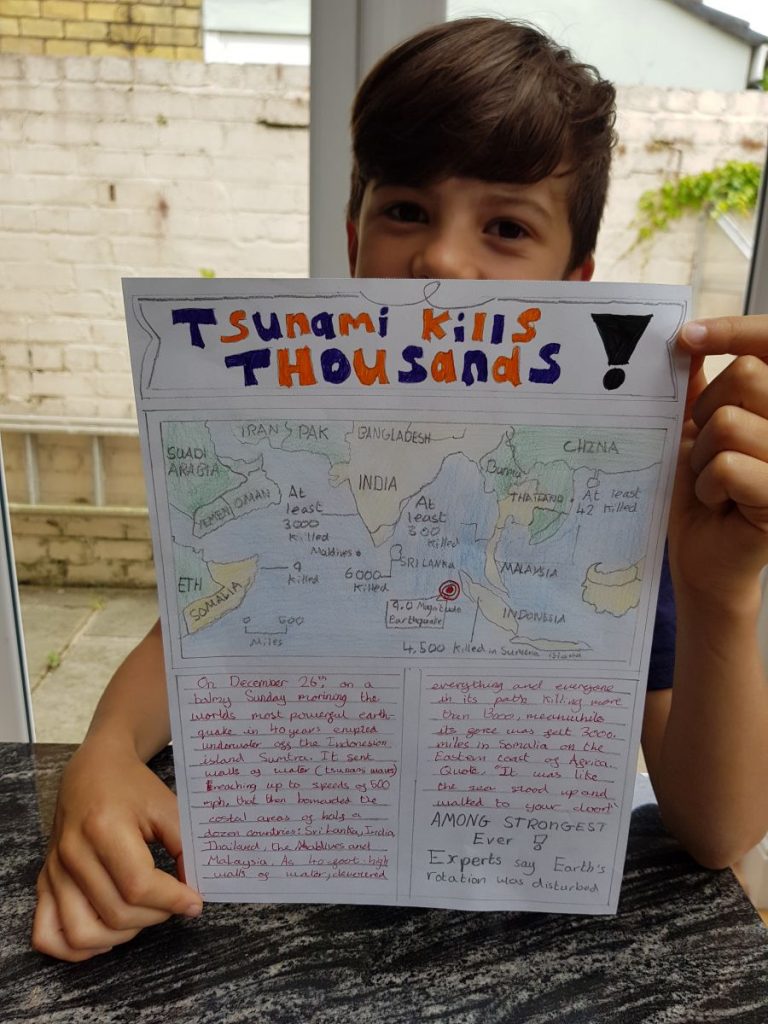 Tsunami Kills
THOUSands !
SUADI
ARAGIA
IRAN
PAK
BANGLADESH
CHINA
INDIA
Burma
THAILAND
YEMEN
OMAN
At
least
3000
Killed
At
least
300
Killed
At least
42 Killed
Maldives
SRI LANKA
MALAYSIA
6000
Killed
9
Killed
ETH
SOMALIA
9.0 Magnitude
Earthquake
INDONESIA
4,500 Killed in Sumatra island
0 600
Miles
On December 26th, on a
balmy Sunday morining the
worlds most powerful earth-
quake in 40 years erupted
underwater off the Indonesion
island Sumtra. It sent
walls of water (tsunami waves)
reaching up to speeds of 500
mph, that then bomarded the
costal areas of half a
dozen countries: Sri lanka, India,
Thailand, the Maldives and
Malaysia. As 40 foot high
walls of water, devered
everything and everyone
in its path killing more
than 13000, meanwhile
its force was felt 3000.
miles in Somalia on the
Eastern coast of Africa.
Quote, "It was like
the sea stood up and
walked to your door!"
AMONG STRONGEST
Ever !?
Experts say Earth's
rotation was disturbed